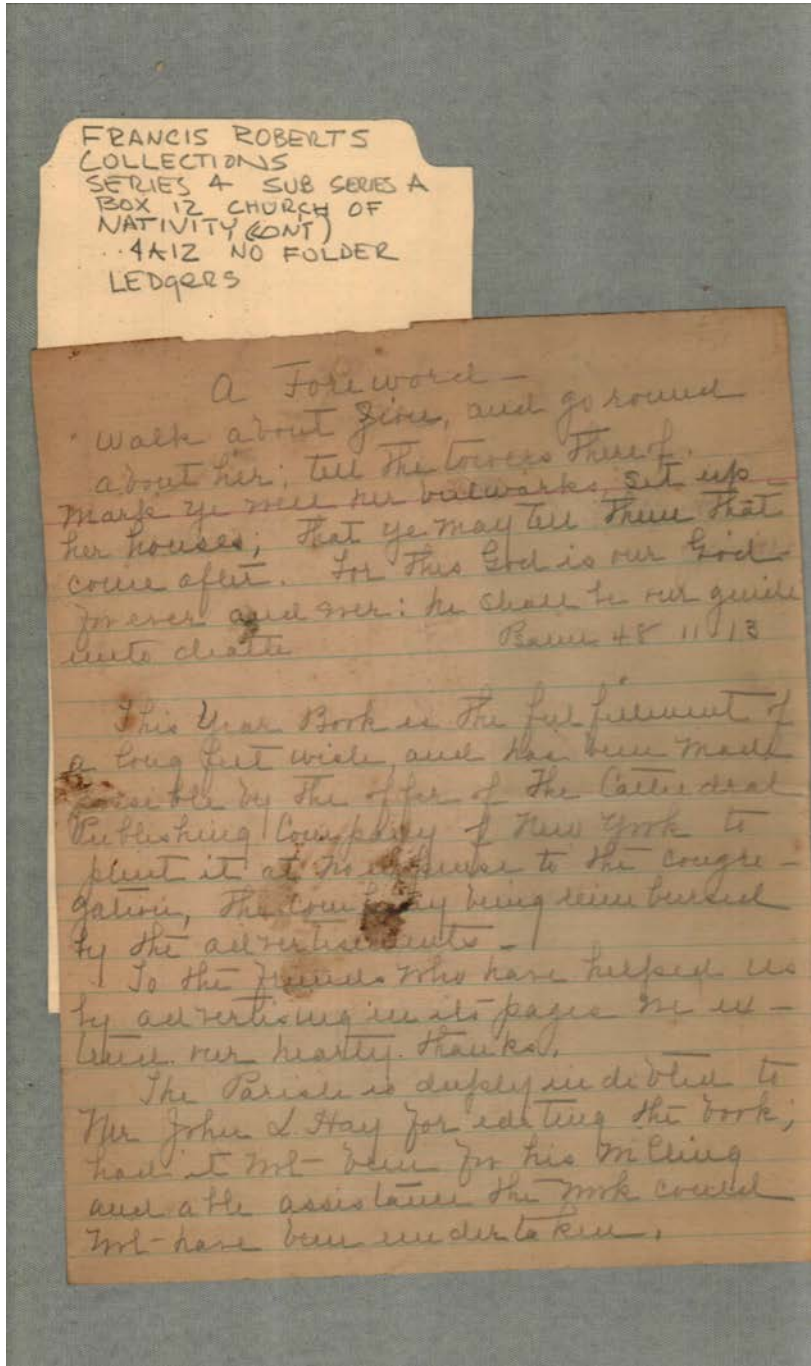 FRANCIS ROBERTS
COLLECTIONS
SERIES 4 SUB SERIES A
BOX 12 CHURCH OF
NATIVITY (CONT)
..4A12 NO FOLDER
LEDGERS
A Foreword—
Walk about Zion, and go round
about her; tell the towers thereof.
Mark ye well her bulwarks, set up
her houses; that ye may tell them that
come after. For this God is our God
for ever and ever: he shall be our guide
unto death Psalm 48 11-13
This Year Book is the fulfillment of
a long felt wish, and has been made
possible by the offer of the Cathedral
Publishing Company of New York to
print it at no expense to the congre-
gation, the company being reimbursed
by the advertisements—
To the friends who have helped us
by advertising in its pages we ex-
tend our hearty thanks.
The Parish is deeply indebted to
Mr John L. Hay for editing the book;
had it not been for his willing
and able assistance the work could
not have been undertaken.